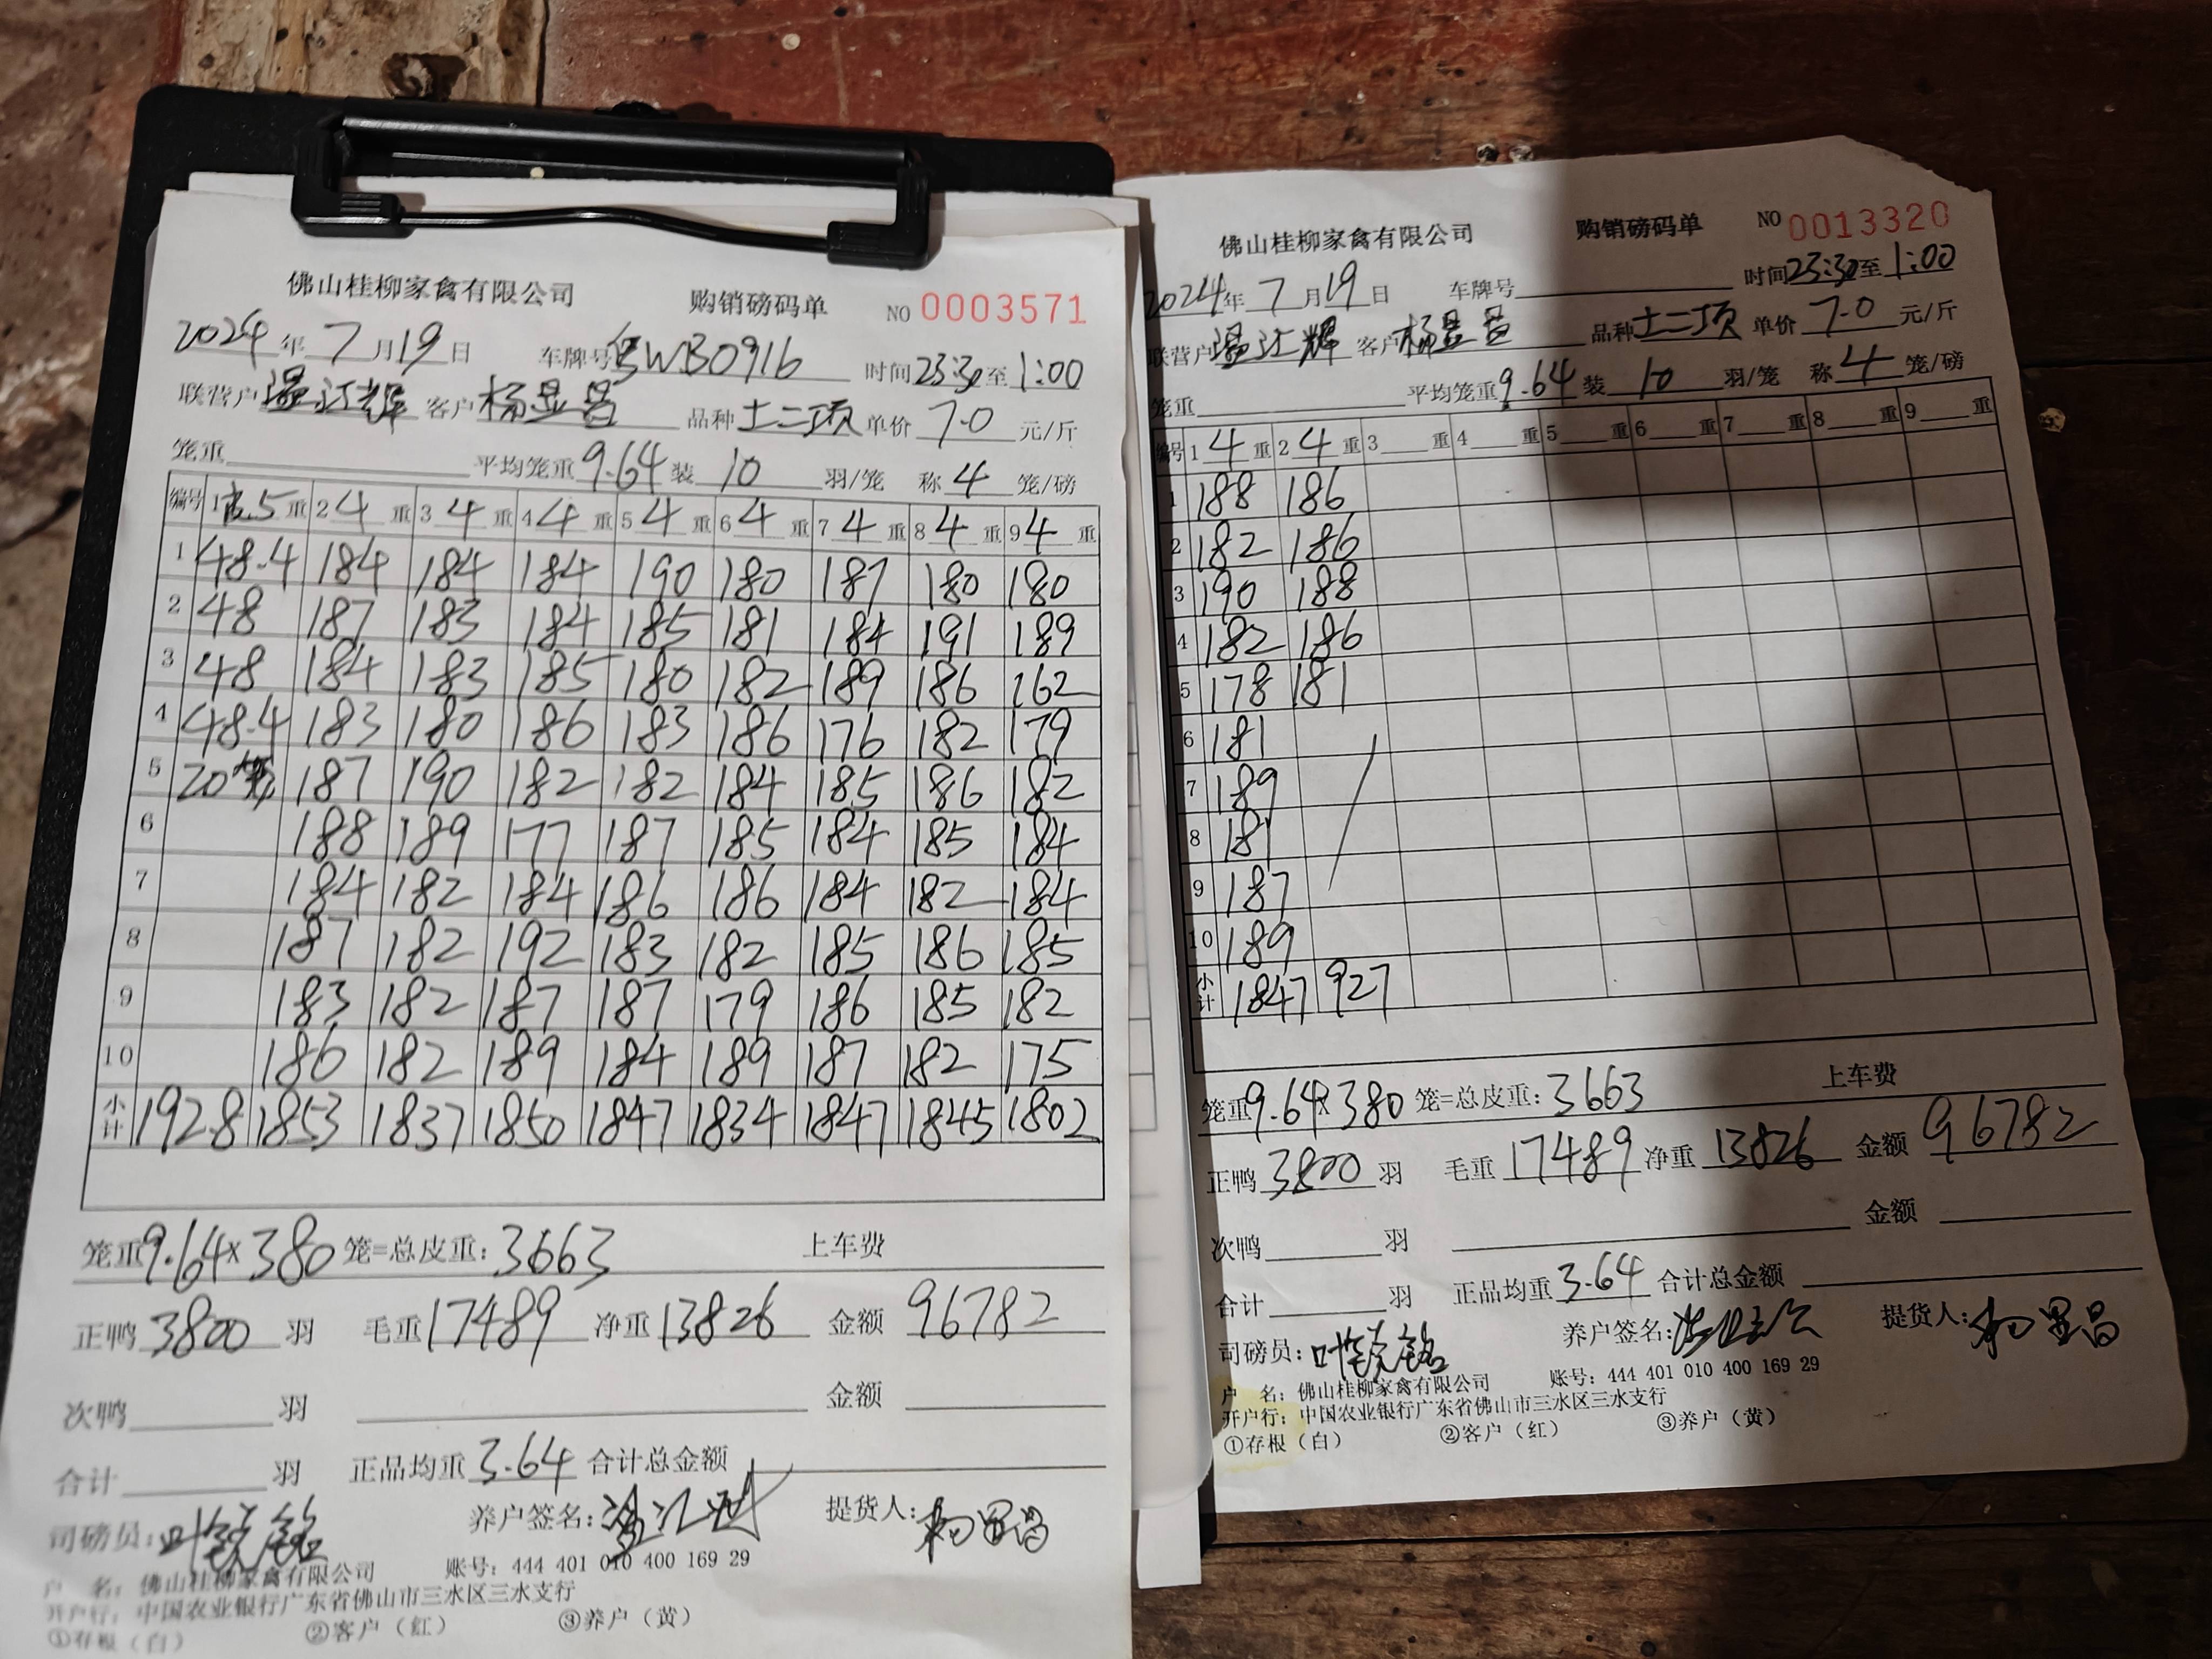 佛山桂柳家禽有限公司 购销磅码单 NO 0003571
2024年7月19日 车牌号WB0916 时间23:30至1:00
联营户温江辉 客户杨显昌 品种土二顶 单价7.0元/斤
笼重 平均笼重9.64装10羽/笼 称4笼/磅
编号 1 5重 2 4重 3 4重 4 4重 5 4重 6 4重 7 4重 8 4重 9 4重
1 48.4 184 184 184 190 180 187 180 180
2 48 187 183 184 185 181 184 191 189
3 48 184 183 185 180 182 189 186 162
4 48.4 183 180 186 183 186 176 182 179
5 20 187 190 182 182 184 185 186 182
6 188 189 177 187 185 184 185 184
7 184 182 184 186 186 184 182 184
8 187 182 192 183 182 185 186 185
9 183 182 187 187 179 186 185 182
10 186 182 189 184 189 187 182 175
小计 192.8 1853 1837 1850 1847 1834 1847 1845 1802
笼重9.64×380笼=总皮重:3663 上车费
正鸭3800羽 毛重17489 净重13826 金额96782
次鸭 羽 金额
合计 羽 正品均重3.64 合计总金额
司磅员:叶锐铭 养户签名: 提货人:
户 名:佛山桂柳家禽有限公司 账号:444 401 010 400 169 29
开户行:中国农业银行广东省佛山市三水区三水支行
①存根(白) ②客户(红) ③养户(黄)
佛山桂柳家禽有限公司 购销磅码单 NO 0013320
2024年7月19日 车牌号 时间23:30至1:00
联营户温江辉 客户杨显昌 品种土二顶 单价7.0元/斤
笼重 平均笼重9.64装10羽/笼 称4笼/磅
编号 1 4重 2 4重 3 重 4 重 5 重 6 重 7 重 8 重 9 重
1 188 186
2 182 186
3 190 188
4 182 186
5 178 181
6 181
7 189
8 181
9 187
10 189
小计 1847 927
笼重9.64×380笼=总皮重:3663 上车费
正鸭3800羽 毛重17489 净重13826 金额96782
次鸭 羽 金额
合计 羽 正品均重3.64 合计总金额
司磅员:叶锐铭 养户签名: 提货人:
户 名:佛山桂柳家禽有限公司 账号:444 401 010 400 169 29
开户行:中国农业银行广东省佛山市三水区三水支行
①存根(白) ②客户(红) ③养户(黄)